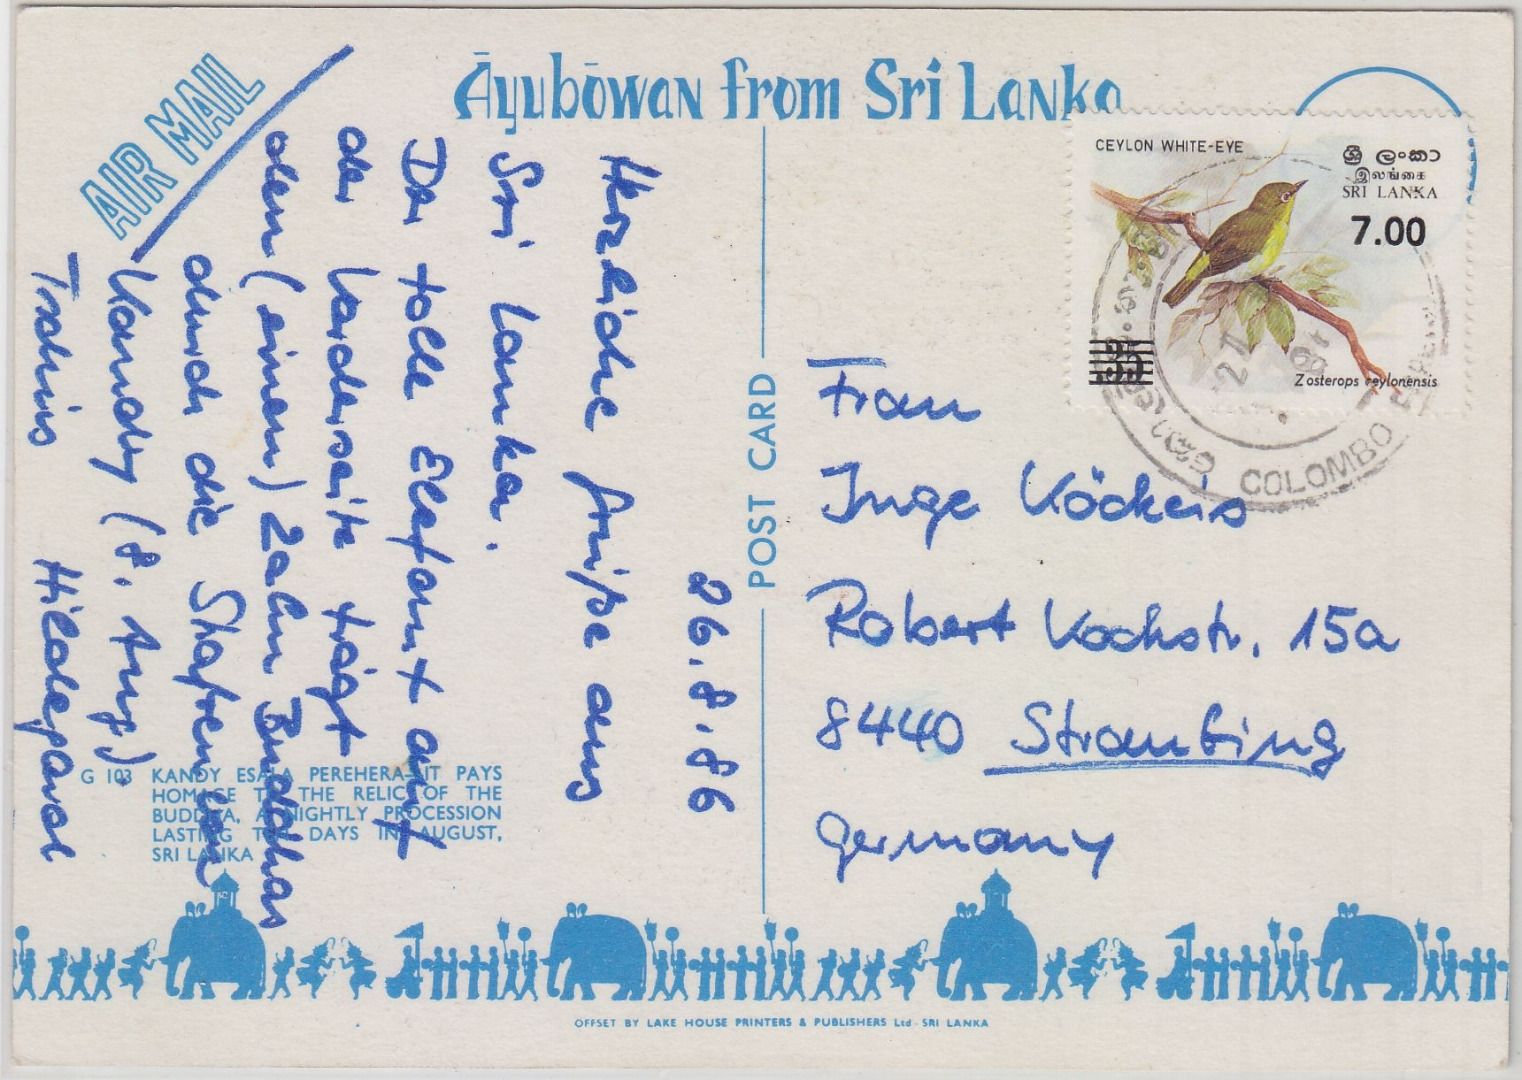 AIR MAIL
Āyubōwan from Sri Lanka
CEYLON WHITE-EYE
ශ්‍රී ලංකා
இலங்கை
SRI LANKA
7.00
35
Zosterops ceylonensis
COLOMBO
26.8.86
Herzliche Grüße aus
Sri Lanka.
Der tolle Elefant auf
der Vorderseite trägt
den (einen) Zahn Buddhas
durch die Straßen von
Kandy (8. Aug.)
Tschüs Hildegard
POST CARD
Frau
Inge Köckeis
Robert Kochstr. 15a
8440 Straubing
Germany
G 103 KANDY ESALA PEREHERA—IT PAYS
HOMAGE TO THE RELIC OF THE
BUDDHA, A NIGHTLY PROCESSION
LASTING TEN DAYS IN AUGUST,
SRI LANKA
OFFSET BY LAKE HOUSE PRINTERS & PUBLISHERS Ltd - SRI LANKA